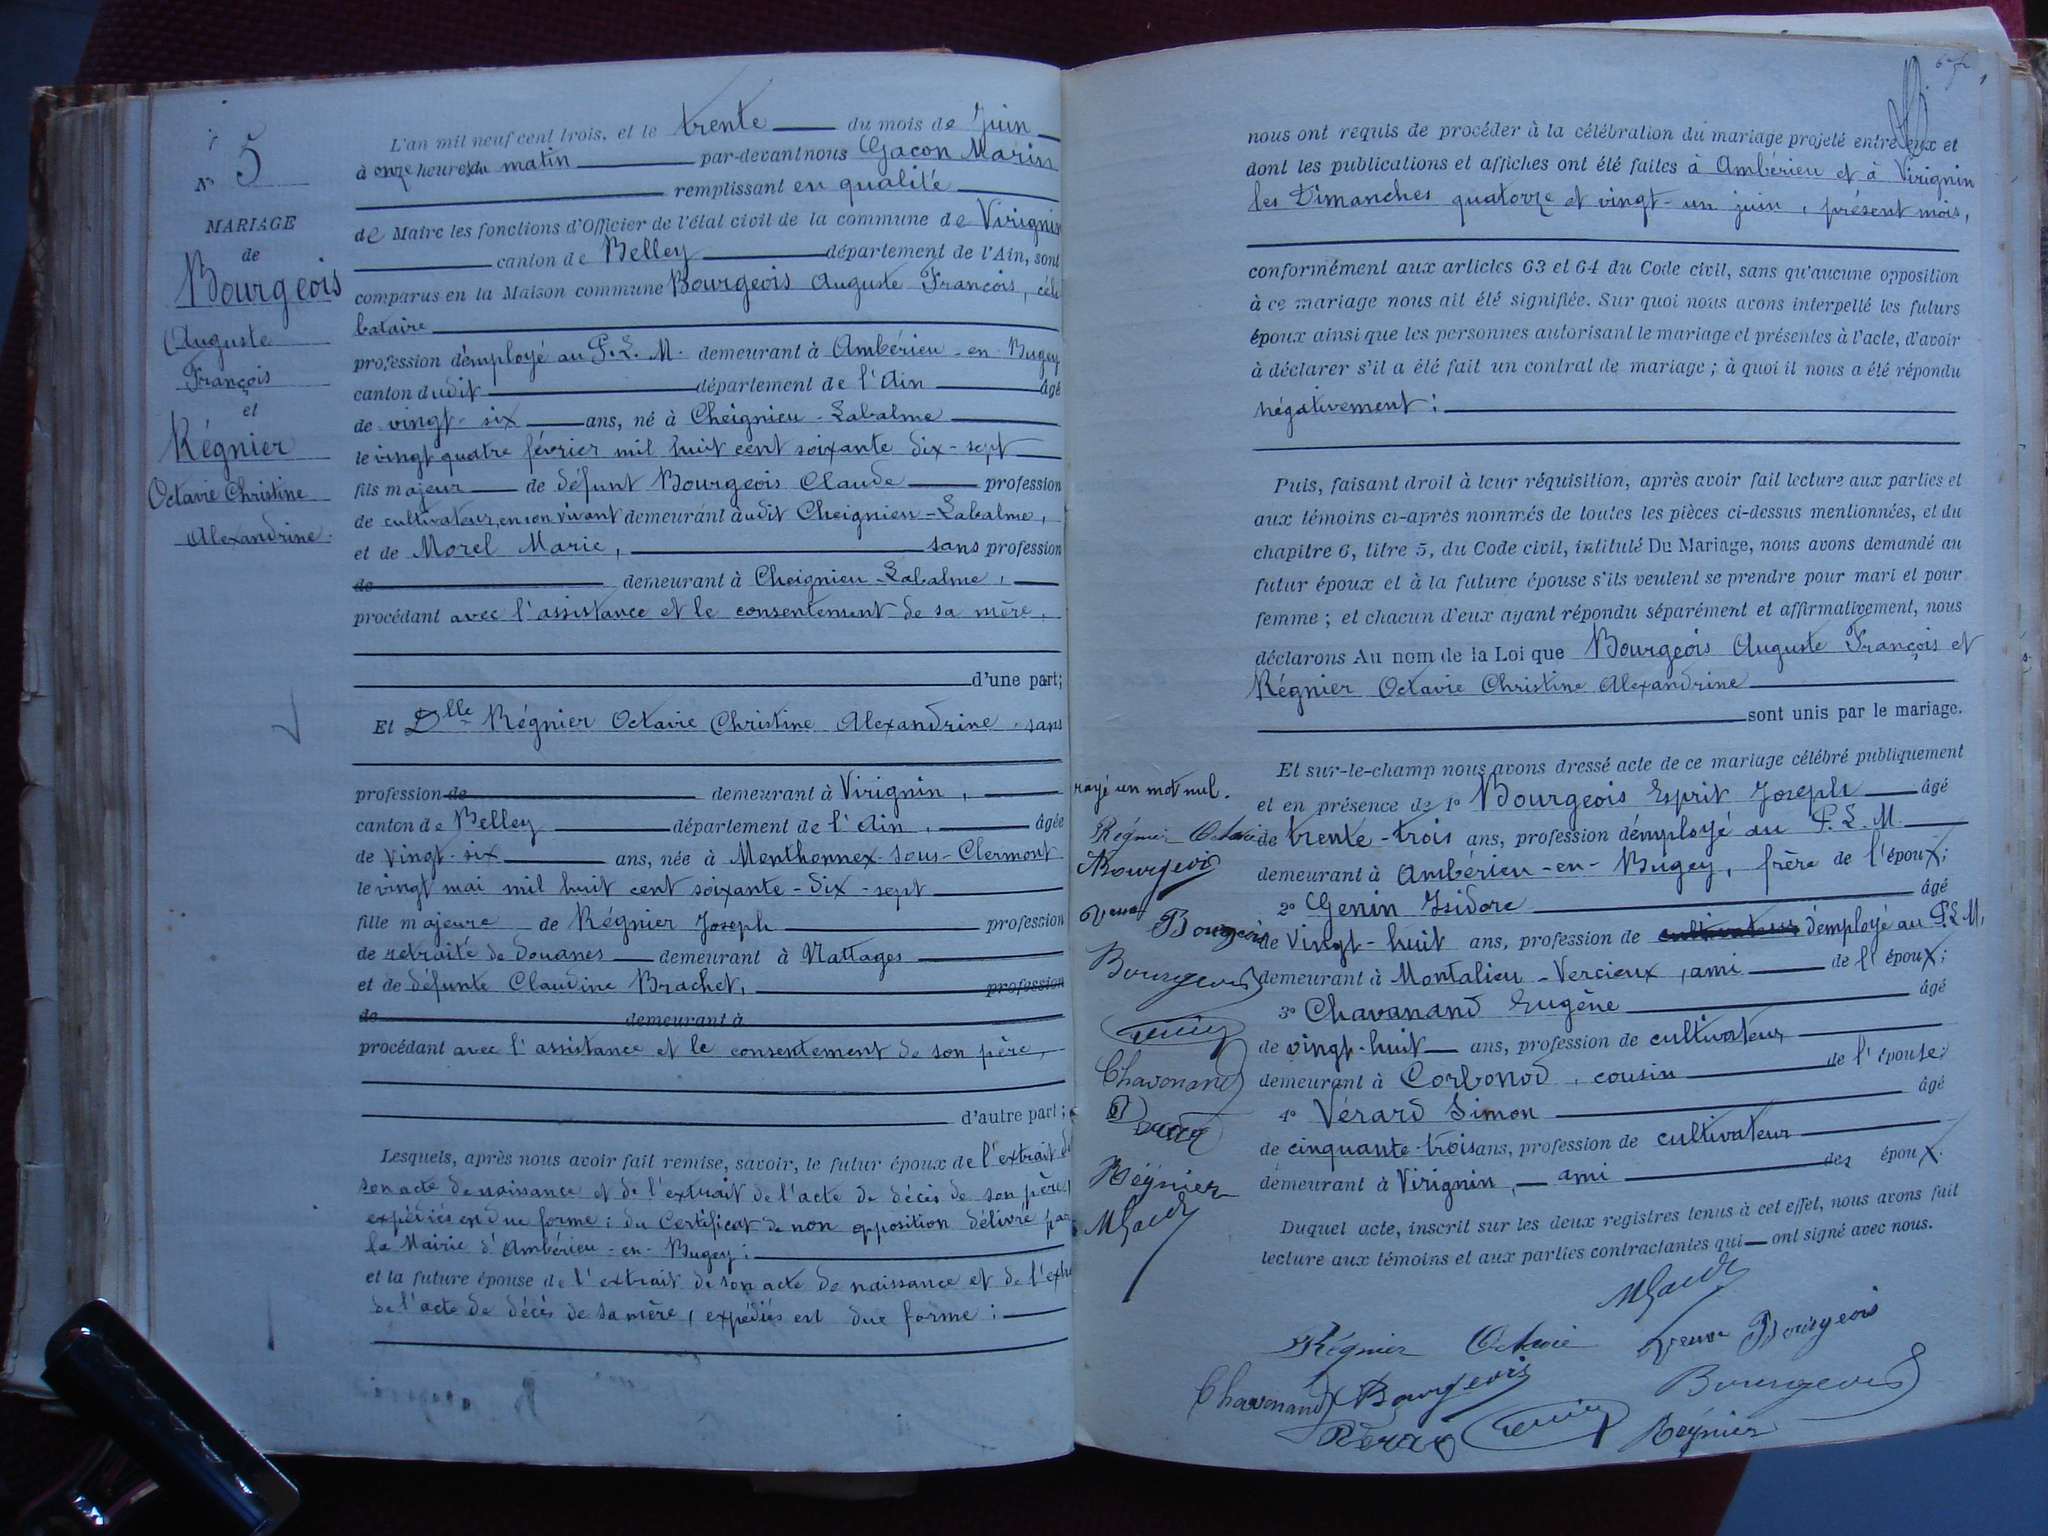 N° 5
MARIAGE
de
Bourgeois
Auguste
François
et
Régnier
Octavie Christine
Alexandrine.
L'an mil neuf cent trois, et le trente du mois de Juin
à onze heures du matin par-devant nous Gacon Marin
remplissant en qualité
de Maire les fonctions d'Officier de l'état civil de la commune de Virignin
canton de Belley département de l'Ain, sont
comparus en la Maison commune Bourgeois Auguste François, céli
bataire
profession d'employé au P.L.M. demeurant à Ambérieu-en-Bugey
canton dudit département de l'Ain âgé
de vingt-six ans, né à Cheignieu-Labalme
le vingt quatre février mil huit cent soixante dix-sept
fils majeur de défunt Bourgeois Claude profession
de cultivateur, en son vivant demeurant audit Cheignieu-Labalme,
et de Morel Marie, sans profession
de demeurant à Cheignieu-Labalme,
procédant avec l'assistance et le consentement de sa mère,
d'une part;
Et Dlle Régnier Octavie Christine Alexandrine, sans
profession de demeurant à Virignin,
canton de Belley département de l'Ain, âgée
de vingt-six ans, née à Menthonnex-sous-Clermont
le vingt mai mil huit cent soixante-dix-sept
fille majeure de Régnier Joseph profession
de retraité de douanes demeurant à Nattages
et de défunte Claudine Brachet, profession
de demeurant à
procédant avec l'assistance et le consentement de son père,
d'autre part;
Lesquels, après nous avoir fait remise, savoir, le futur époux de l'extrait de
son acte de naissance et de l'extrait de l'acte de décès de son père,
expédiés en due forme; du Certificat de non opposition délivré par
la Mairie d'Ambérieu-en-Bugey;
et la future épouse de l'extrait de son acte de naissance et de l'extr
de l'acte de décès de sa mère, expédiés en due forme;
nous ont requis de procéder à la célébration du mariage projeté entre eux et
dont les publications et affiches ont été faites à Ambérieu et à Virignin
les Dimanches quatorze et vingt-un juin, présent mois,
conformément aux articles 63 et 64 du Code civil, sans qu'aucune opposition
à ce mariage nous ait été signifiée. Sur quoi nous avons interpellé les futurs
époux ainsi que les personnes autorisant le mariage et présentes à l'acte, d'avoir
à déclarer s'il a été fait un contrat de mariage; à quoi il nous a été répondu
négativement;
Puis, faisant droit à leur réquisition, après avoir fait lecture aux parties et
aux témoins ci-après nommés de toutes les pièces ci-dessus mentionnées, et du
chapitre 6, titre 5, du Code civil, intitulé Du Mariage, nous avons demandé au
futur époux et à la future épouse s'ils veulent se prendre pour mari et pour
femme; et chacun d'eux ayant répondu séparément et affirmativement, nous
déclarons Au nom de la Loi que Bourgeois Auguste François et
Régnier Octavie Christine Alexandrine
sont unis par le mariage.
Et sur-le-champ nous avons dressé acte de ce mariage célébré publiquement
et en présence de 1° Bourgeois Esprit Joseph âgé
de trente-trois ans, profession d'employé au P.L.M.
demeurant à Ambérieu-en-Bugey, frère de l'époux;
2° Genin Isidore âgé
de vingt-huit ans, profession de cultivateur d'employé au P.L.M,
demeurant à Montalieu-Vercieux, ami de l'époux;
3° Chavanand Eugène âgé
de vingt-huit ans, profession de cultivateur
demeurant à Corbonod, cousin de l'épouse;
4° Vérard Simon âgé
de cinquante-trois ans, profession de cultivateur
demeurant à Virignin, ami des époux.
Duquel acte, inscrit sur les deux registres tenus à cet effet, nous avons fait
lecture aux témoins et aux parties contractantes qui ont signé avec nous.
rayé un mot nul.
Régnier Octavie
Bourgeois
Veuve Bourgeois
Bourgeois
Genin
Chavanand
Régnier
Régnier Octavie Veuve Bourgeois
Chavanand Bourgeois Bourgeois
Vérard Genin Régnier